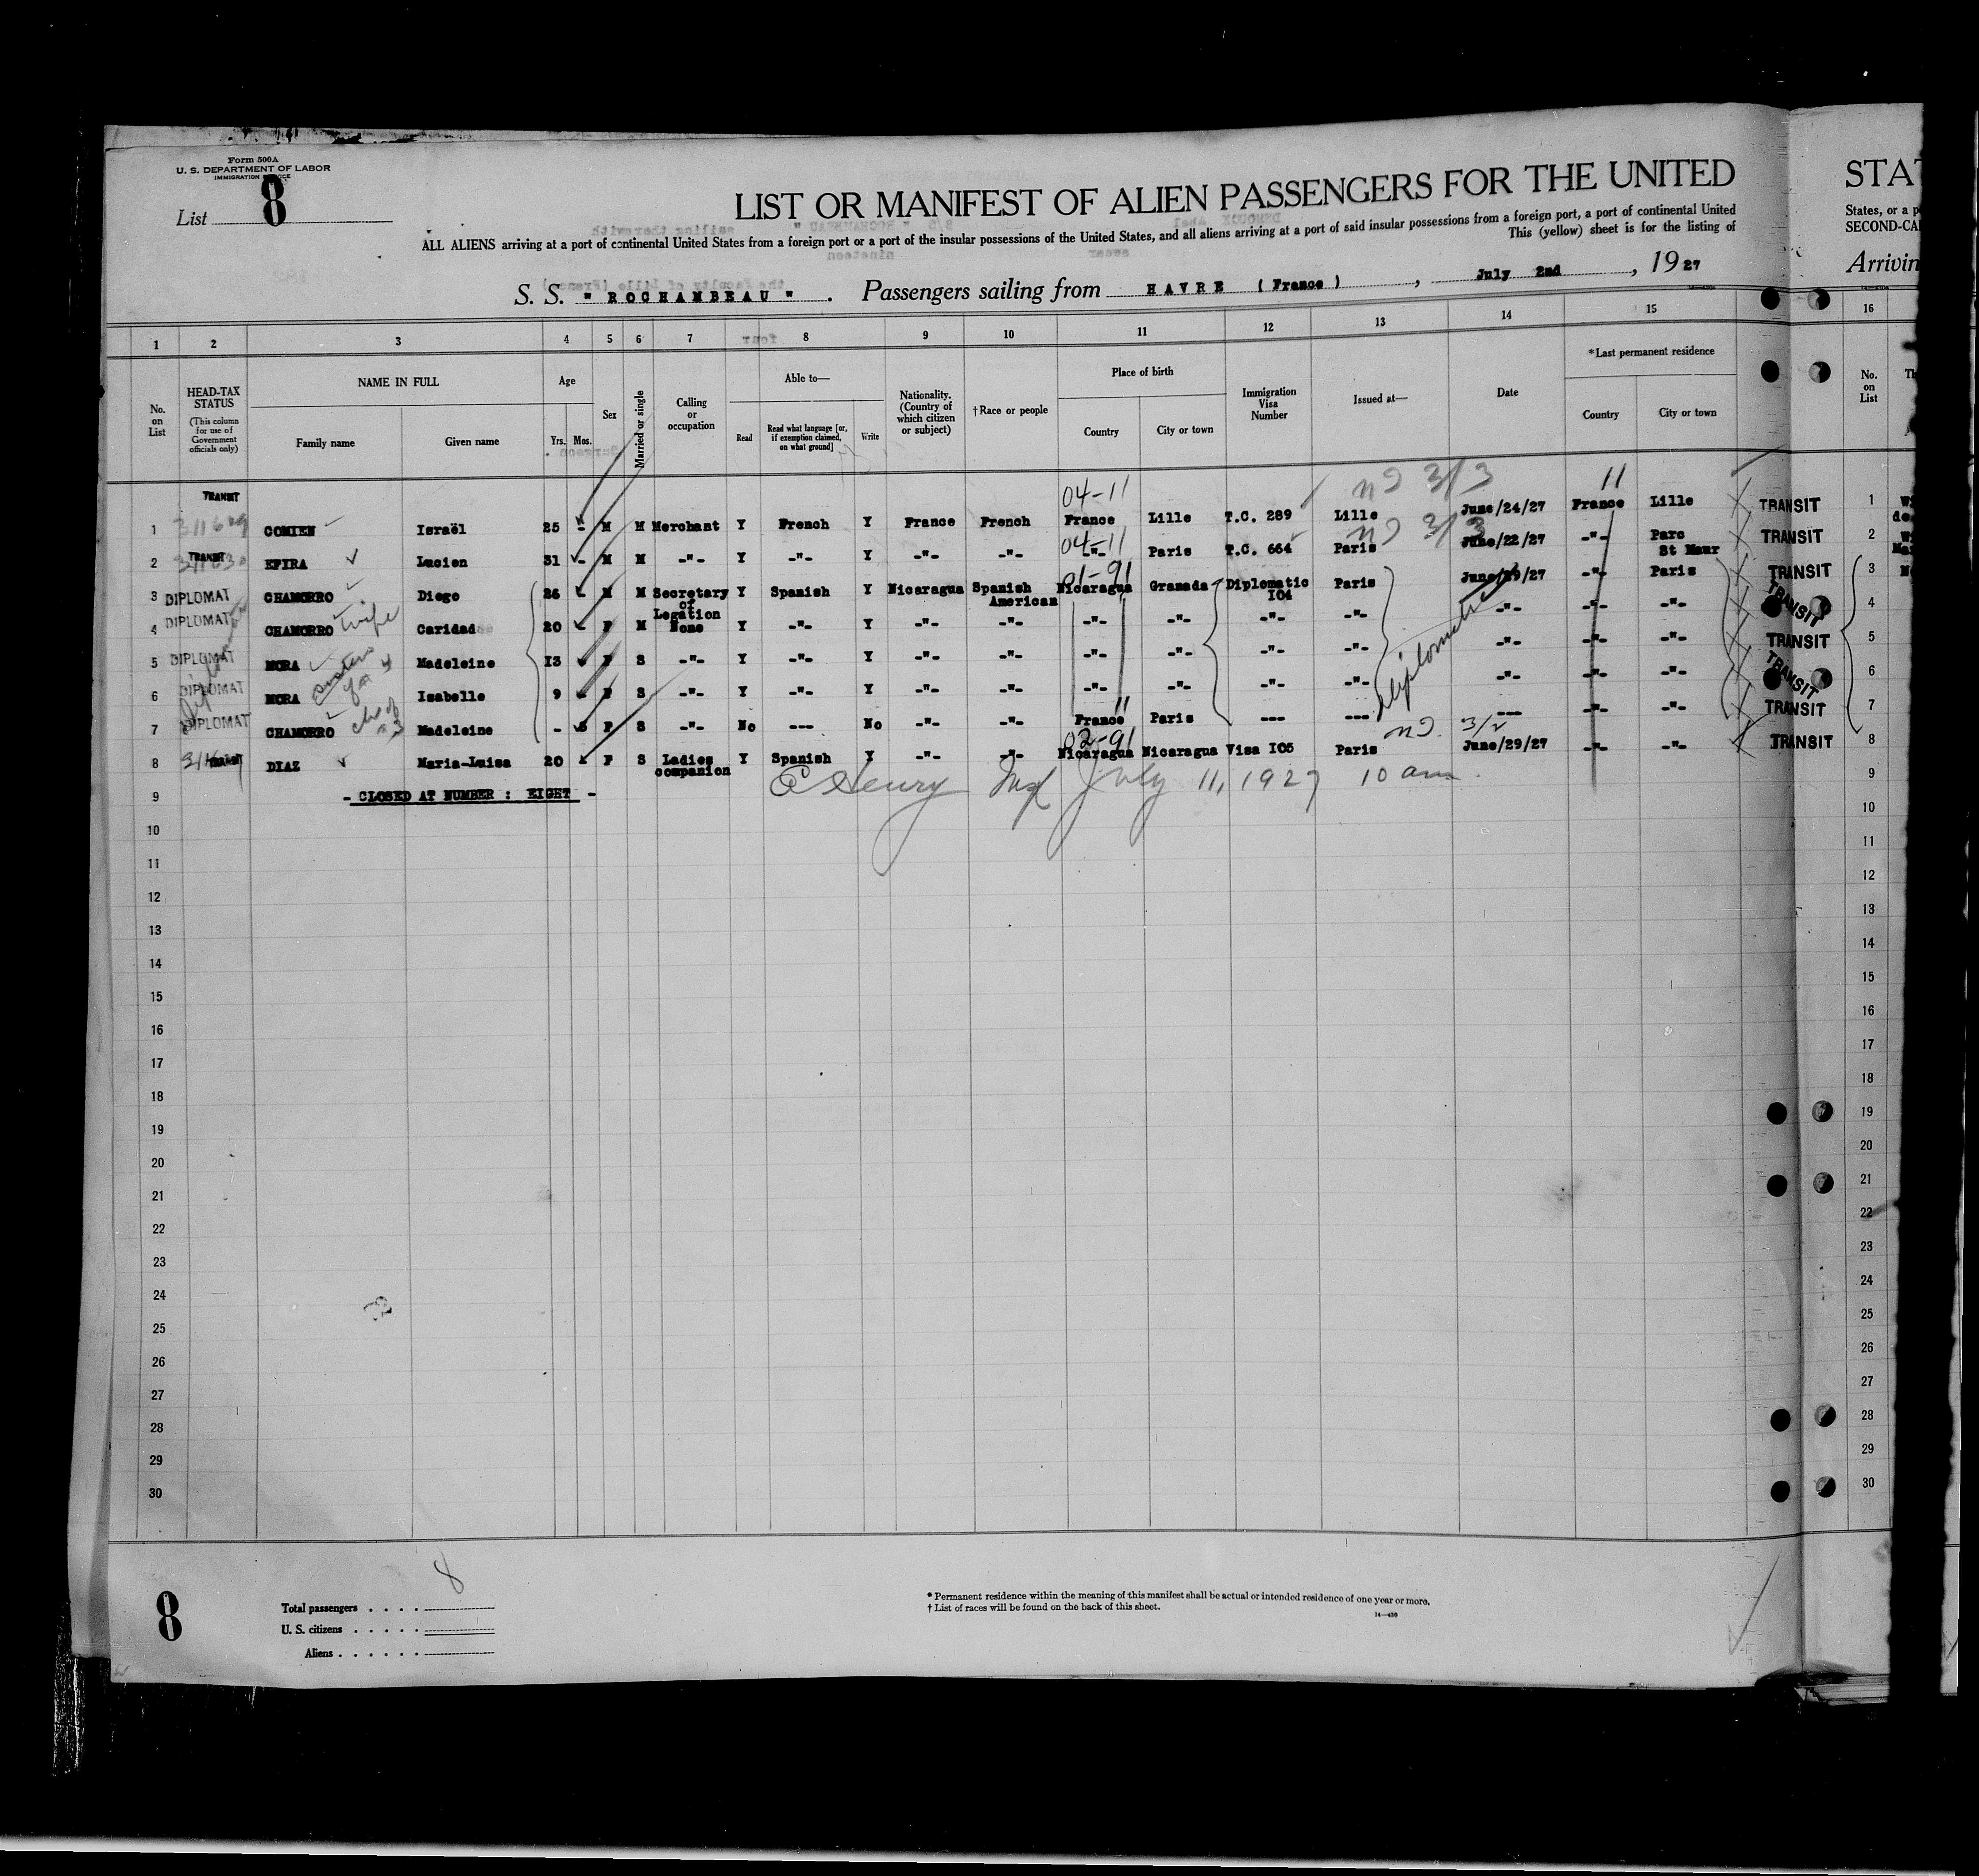 Form 500A
U. S. DEPARTMENT OF LABOR
IMMIGRATION
List 8
LIST OR MANIFEST OF ALIEN PASSENGERS FOR THE UNITED
ALL ALIENS arriving at a port of continental United States from a foreign port or a port of the insular possessions of the United States, and all aliens arriving at a port of said insular possessions from a foreign port, a port of continental United
This (yellow) sheet is for the listing of
S. S. " ROCHAMBEAU " . Passengers sailing from HAVRE ( France ) , July 2nd , 19 27
STAT
States, or a p
SECOND-CA
Arrivin
1 2 3 4 5 6 7 8 9 10 11 12 13 14 15 16
No. on List
HEAD-TAX STATUS
(This column for use of Government officials only)
NAME IN FULL
Family name Given name
Age
Yrs. Mos.
Sex
Married or single
Calling or occupation
Able to—
Read
Read what language [or, if exemption claimed, on what ground]
Write
Nationality. (Country of which citizen or subject)
†Race or people
Place of birth
Country City or town
Immigration Visa Number
Issued at—
Date
*Last permanent residence
Country City or town
No. on List
TRANSIT 04-11 no 3/3 11
1 COMIEN Israël 25 - M M Merchant Y French Y France French France Lille T.C. 289 Lille June/24/27 France Lille TRANSIT 1
TRANSIT 04-11 no 3/3
2 EFIRA Lucien 31 - M M -"- Y -"- Y -"- -"- -"- Paris T.C. 664 Paris June/22/27 -"- Parc St Maur TRANSIT 2
01-91
3 DIPLOMAT CHAMORRO Diego 26 - M M Secretary of Legation Y Spanish Y Nicaragua Spanish American Nicaragua Granada Diplomatic 104 Paris June/29/27 -"- Paris TRANSIT 3
4 DIPLOMAT CHAMORRO wife Caridad 20 - F M None Y -"- Y -"- -"- -"- -"- -"- -"- -"- -"- -"- TRANSIT 4
5 DIPLOMAT MORA Madeleine 13 - F S -"- Y -"- Y -"- -"- -"- -"- -"- -"- -"- -"- -"- TRANSIT 5
sisters of # 4
6 DIPLOMAT MORA Isabelle 9 - F S -"- Y -"- Y -"- -"- -"- -"- -"- -"- -"- -"- -"- TRANSIT 6
diplomatic
7 DIPLOMAT CHAMORRO Madeleine - 8 F S -"- No --- No -"- -"- France Paris --- --- --- -"- -"- TRANSIT 7
02-91 no 3/2
8 TRANSIT DIAZ Maria-Luisa 20 - F S Ladies companion Y Spanish Y -"- -"- Nicaragua Nicaragua Visa 105 Paris June/29/27 -"- -"- TRANSIT 8
July 11, 1927 10 am.
9 - CLOSED AT NUMBER : EIGHT - 9
10 10
11 11
12 12
13 13
14 14
15 15
16 16
17 17
18 18
19 19
20 20
21 21
22 22
23 23
24 24
25 25
26 26
27 27
28 28
29 29
30 30
8
8
Total passengers . . . .
U. S. citizens . . . . .
Aliens . . . . . .
* Permanent residence within the meaning of this manifest shall be actual or intended residence of one year or more.
† List of races will be found on the back of this sheet.
14—430